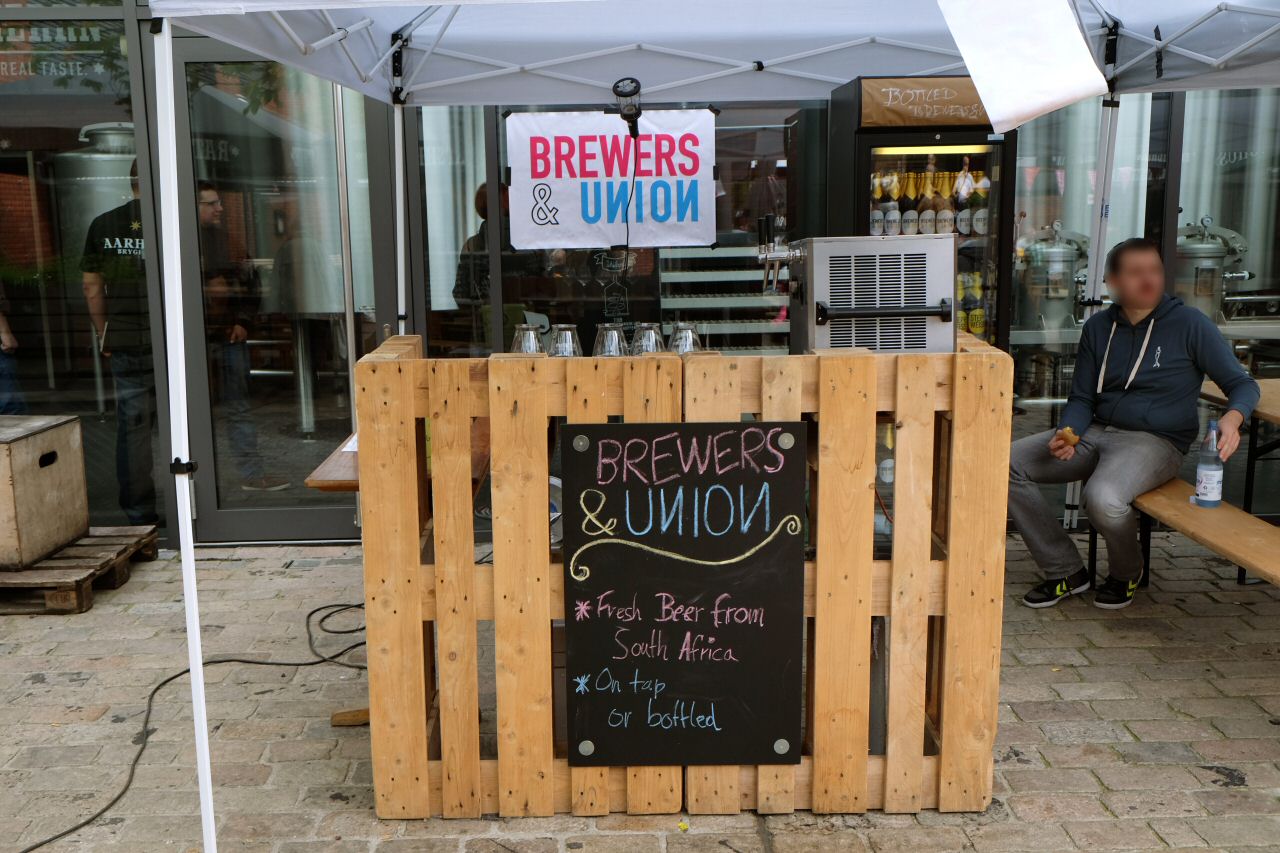 REAL TASTE.
AARH
BRYGH
BREWERS
& UИIOИ
BOTTLED
BREWERS
& UИIOИ
* Fresh Beer from
South Africa
* On tap
or bottled